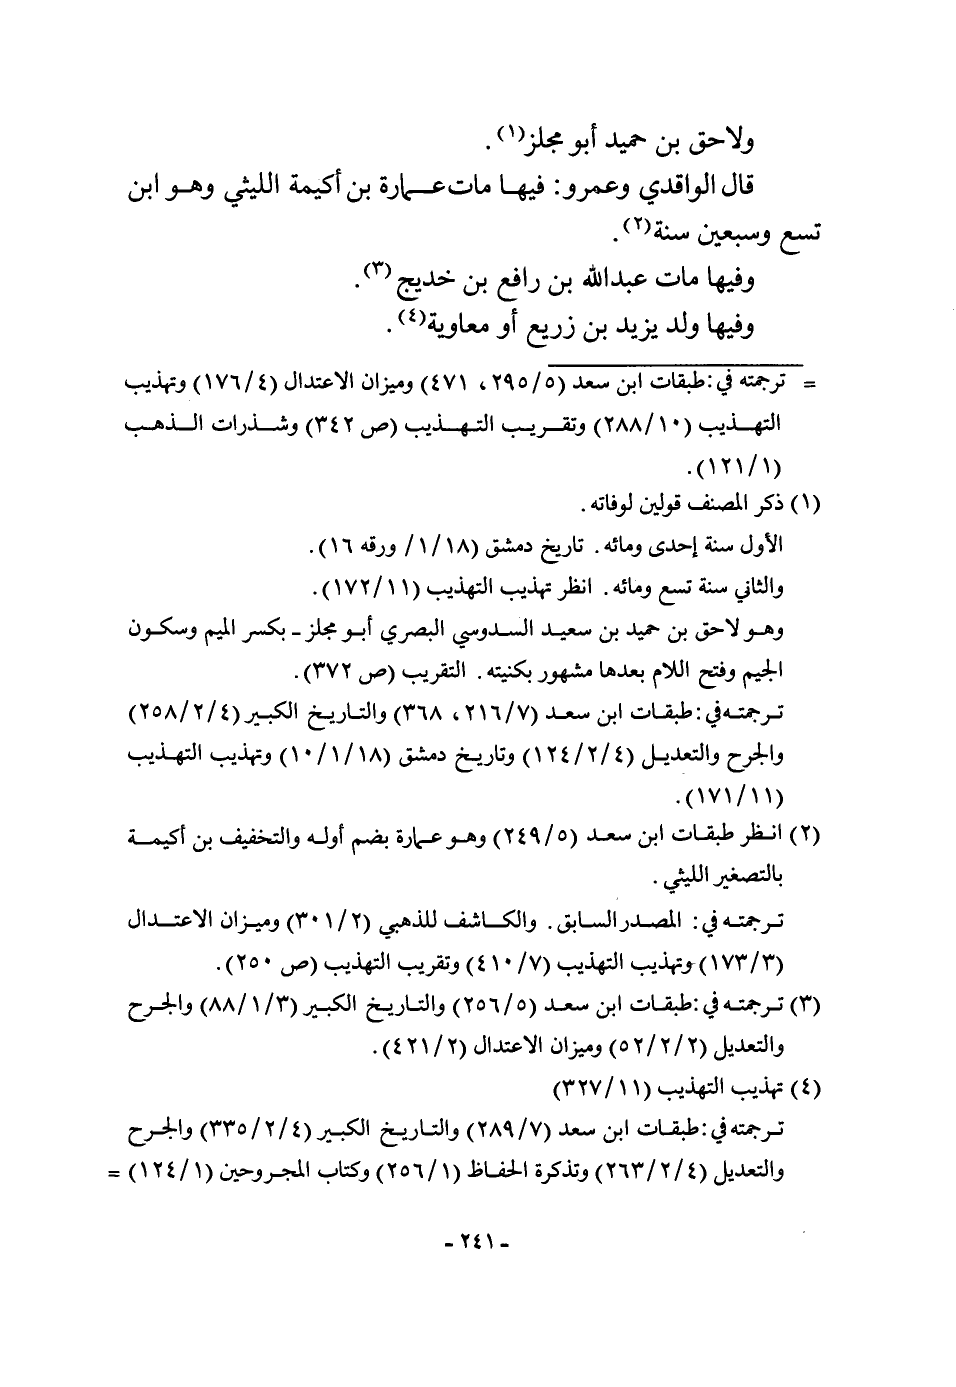 ولاحق بن حميد أبو مجلز(١).
قال الواقدي وعمرو: فيها مات عمارة بن أكيمة الليثي وهو ابن
تسع وسبعين سنة(٢).
وفيها مات عبدالله بن رافع بن خديج(٣).
وفيها ولد يزيد بن زريع أو معاوية(٤).
= ترجمته في: طبقات ابن سعد (٢٩٥/٥، ٤٧١) وميزان الاعتدال (١٧٦/٤) وتهذيب
التهذيب (٢٨٨/١٠) وتقريب التهذيب (ص ٣٤٢) وشذرات الذهب
(١٢١/١).
(١) ذكر المصنف قولين لوفاته.
الأول سنة إحدى ومائه. تاريخ دمشق (١/١٨/ ورقه ١٦).
والثاني سنة تسع ومائه. انظر تهذيب التهذيب (١٧٢/١١).
وهو لاحق بن حميد بن سعيد السدوسي البصري أبو مجلز ـ بكسر الميم وسكون
الجيم وفتح اللام بعدها مشهور بكنيته. التقريب (ص ٣٧٢).
ترجمته في: طبقات ابن سعد (٢١٦/٧، ٣٦٨) والتاريخ الكبير (٢٥٨/٢/٤)
والجرح والتعديل (١٢٤/٢/٤) وتاريخ دمشق (١٠/١/١٨) وتهذيب التهذيب
(١٧١/١١).
(٢) انظر طبقات ابن سعد (٢٤٩/٥) وهو عمارة بضم أوله والتخفيف بن أكيمة
بالتصغير الليثي.
ترجمته في: المصدر السابق. والكاشف للذهبي (٣٠١/٢) وميزان الاعتدال
(١٧٣/٣) وتهذيب التهذيب (٤١٠/٧) وتقريب التهذيب (ص ٢٥٠).
(٣) ترجمته في: طبقات ابن سعد (٢٥٦/٥) والتاريخ الكبير (٨٨/١/٣) والجرح
والتعديل (٥٢/٢/٢) وميزان الاعتدال (٤٢١/٢).
(٤) تهذيب التهذيب (٣٢٧/١١)
ترجمته في: طبقات ابن سعد (٢٨٩/٧) والتاريخ الكبير (٣٣٥/٢/٤) والجرح
والتعديل (٢٦٣/٢/٤) وتذكرة الحفاظ (٢٥٦/١) وكتاب المجروحين (١٢٤/١) =
- ٢٤١ -